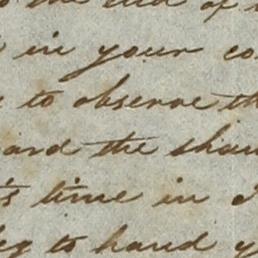 the end of
in your co
to observe th
and the shar
's time in
beg to hand y